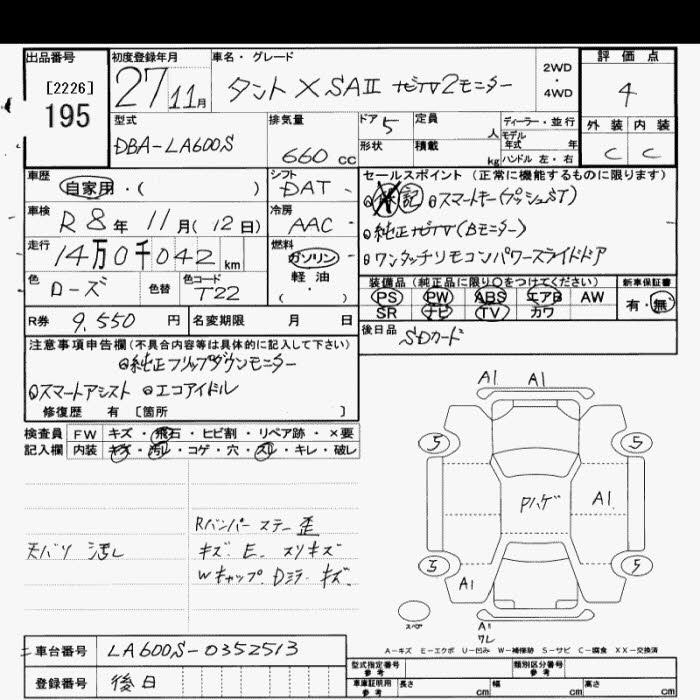 出品番号 [2226] 195
初度登録年月 27年 11月
車名・グレード タント X SAⅡ ナビTV 2モニター
2WD ・ 4WD
評価点 4
外装 内装
C C
型式 DBA-LA600S
排気量 660 cc
ドア 5
形状
定員 人
積載 kg
ディーラー・並行
モデル年式 年
ハンドル 左・右
車歴 自家用・( )
シフト DAT
車検 R8年 11月(12日)
冷房 AAC
走行 14万0千042 km
燃料 ガソリン 軽油 ( ・ )
色 ローズ 色替 色コード T22
R券 9,550 円 名変期限 月 日
セールスポイント (正常に機能するものに限ります)
記 スマートキー(プッシュST)
純正ナビTV(Bモニター)
ワンタッチリモコンパワースライドドア
装備品 (純正品に限り○をつけてください) 新車保証書
PS PW ABS エアB AW 有・無
SR ナビ TV カワ
後日品 SDカード
注意事項申告欄(不具合内容等は具体的に記入して下さい)
純正フリップダウンモニター
スマートアシスト エコアイドル
修復歴 有 [箇所 ]
検査員 FW キズ・飛石・ヒビ割・リペア跡・×要
記入欄 内装 キズ・汚レ・コゲ・穴・スレ・キレ・破レ
天バリ 汚レ
Rバンパー ステー 歪
キズ. E. スリキズ
Wキャップ. Dミラ. キズ.
A1 A1
5 5
Pハゲ A1
5 5
A1
スペア A1
ワレ
A-キズ E-エクボ U-凹み W-補修跡 S-サビ C-腐食 XX-交換済
車台番号 LA600S-0352513
登録番号 後日
型式指定番号 参考 類別区分番号 参考
車庫証明用 参考 長さ cm 幅 cm 高さ cm